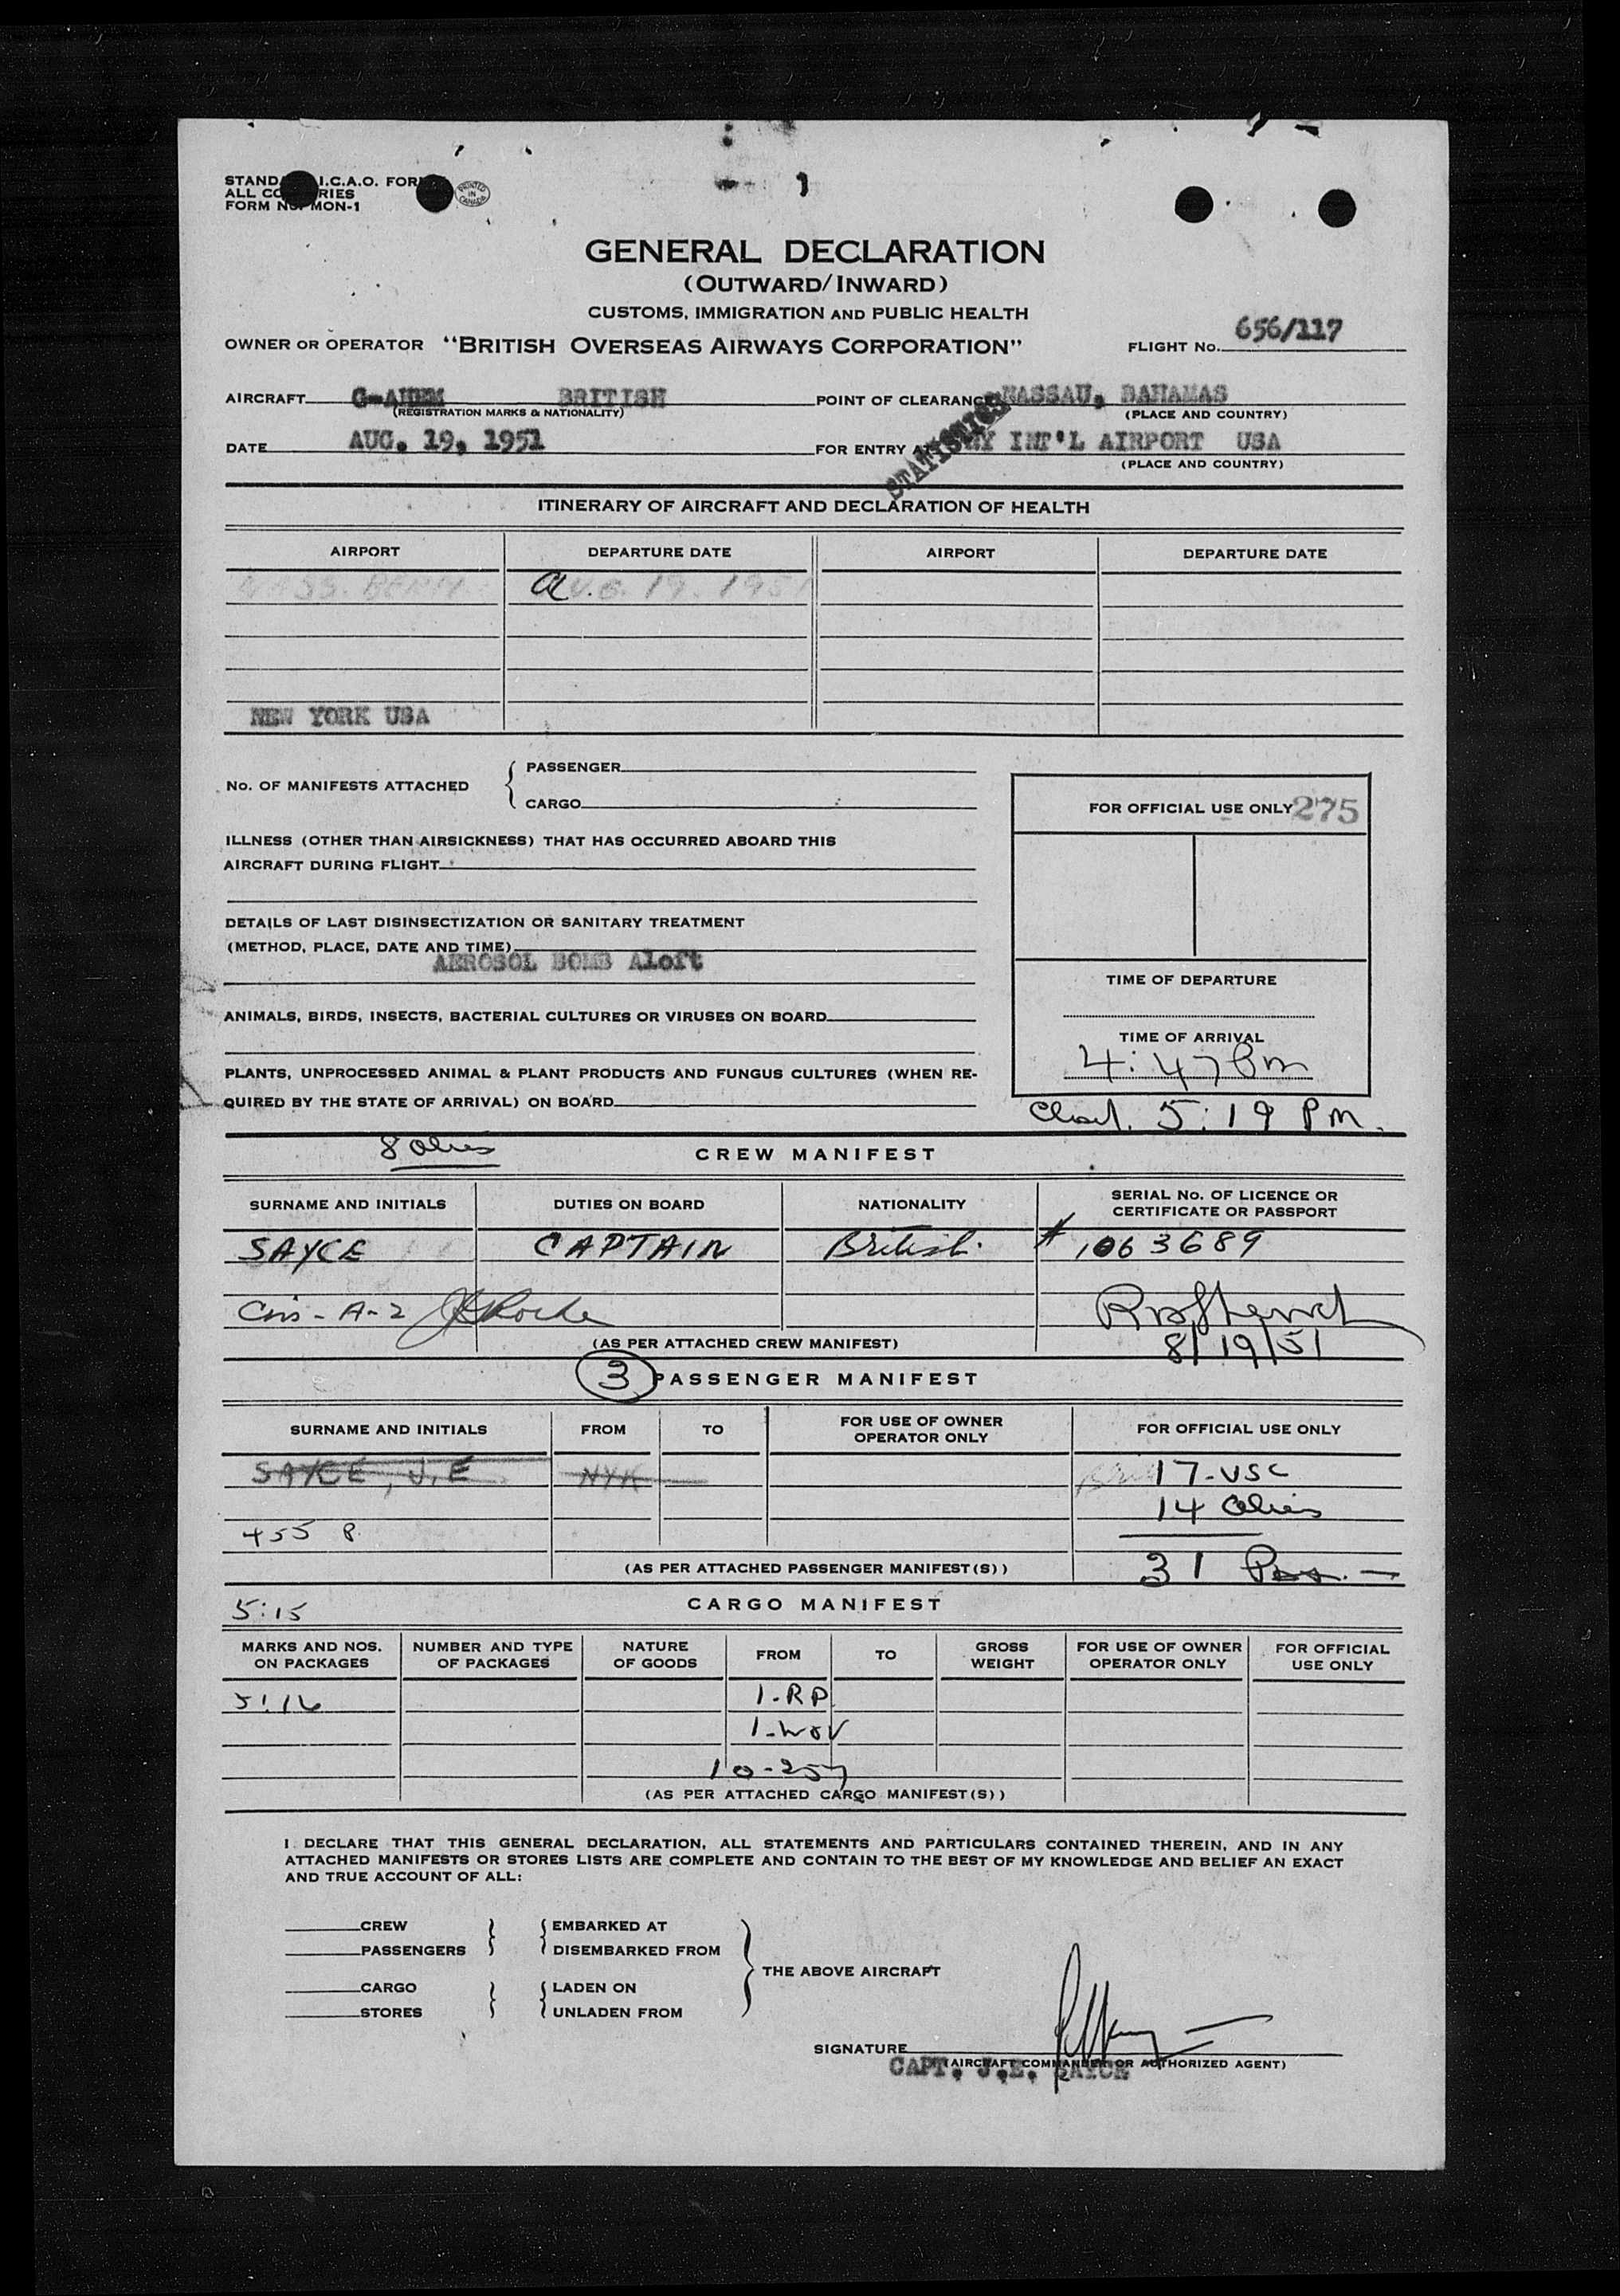 STAND I.C.A.O. FOR
ALL CO RIES
FORM NO. MON-1
PRINTED IN CANADA
GENERAL DECLARATION
(OUTWARD/INWARD)
CUSTOMS, IMMIGRATION AND PUBLIC HEALTH
OWNER OR OPERATOR "BRITISH OVERSEAS AIRWAYS CORPORATION" FLIGHT No. 656/117
AIRCRAFT G-AHEM BRITISH POINT OF CLEARANCE NASSAU, BAHAMAS
(REGISTRATION MARKS & NATIONALITY) (PLACE AND COUNTRY)
STATISTICS
DATE AUG. 19, 1951 FOR ENTRY AT NY INT'L AIRPORT USA
(PLACE AND COUNTRY)
ITINERARY OF AIRCRAFT AND DECLARATION OF HEALTH
AIRPORT DEPARTURE DATE AIRPORT DEPARTURE DATE
AUG. 19. 1951
NEW YORK USA
No. OF MANIFESTS ATTACHED { PASSENGER
CARGO
FOR OFFICIAL USE ONLY 275
ILLNESS (OTHER THAN AIRSICKNESS) THAT HAS OCCURRED ABOARD THIS
AIRCRAFT DURING FLIGHT
DETAILS OF LAST DISINSECTIZATION OR SANITARY TREATMENT
(METHOD, PLACE, DATE AND TIME)
AEROSOL BOMB Aloft
TIME OF DEPARTURE
ANIMALS, BIRDS, INSECTS, BACTERIAL CULTURES OR VIRUSES ON BOARD
TIME OF ARRIVAL
4:47 Pm
PLANTS, UNPROCESSED ANIMAL & PLANT PRODUCTS AND FUNGUS CULTURES (WHEN RE-
QUIRED BY THE STATE OF ARRIVAL) ON BOARD
5:19 PM.
8 CREW MANIFEST
SURNAME AND INITIALS DUTIES ON BOARD NATIONALITY SERIAL No. OF LICENCE OR
CERTIFICATE OR PASSPORT
SAYCE CAPTAIN British. # 1063689
A-2
(AS PER ATTACHED CREW MANIFEST) 8/19/51
3 PASSENGER MANIFEST
SURNAME AND INITIALS FROM TO FOR USE OF OWNER
OPERATOR ONLY FOR OFFICIAL USE ONLY
SAYCE, J.E NYK 17-USC
14
455 P
(AS PER ATTACHED PASSENGER MANIFEST(S)) 31
5:15 CARGO MANIFEST
MARKS AND NOS.
ON PACKAGES NUMBER AND TYPE
OF PACKAGES NATURE
OF GOODS FROM TO GROSS
WEIGHT FOR USE OF OWNER
OPERATOR ONLY FOR OFFICIAL
USE ONLY
5:16 1-RP
10-257
(AS PER ATTACHED CARGO MANIFEST(S))
I DECLARE THAT THIS GENERAL DECLARATION, ALL STATEMENTS AND PARTICULARS CONTAINED THEREIN, AND IN ANY
ATTACHED MANIFESTS OR STORES LISTS ARE COMPLETE AND CONTAIN TO THE BEST OF MY KNOWLEDGE AND BELIEF AN EXACT
AND TRUE ACCOUNT OF ALL:
CREW EMBARKED AT
PASSENGERS DISEMBARKED FROM
THE ABOVE AIRCRAFT
CARGO LADEN ON
STORES UNLADEN FROM
SIGNATURE
(AIRCRAFT COMMANDER OR AUTHORIZED AGENT)
CAPT. J.E. SAYCE